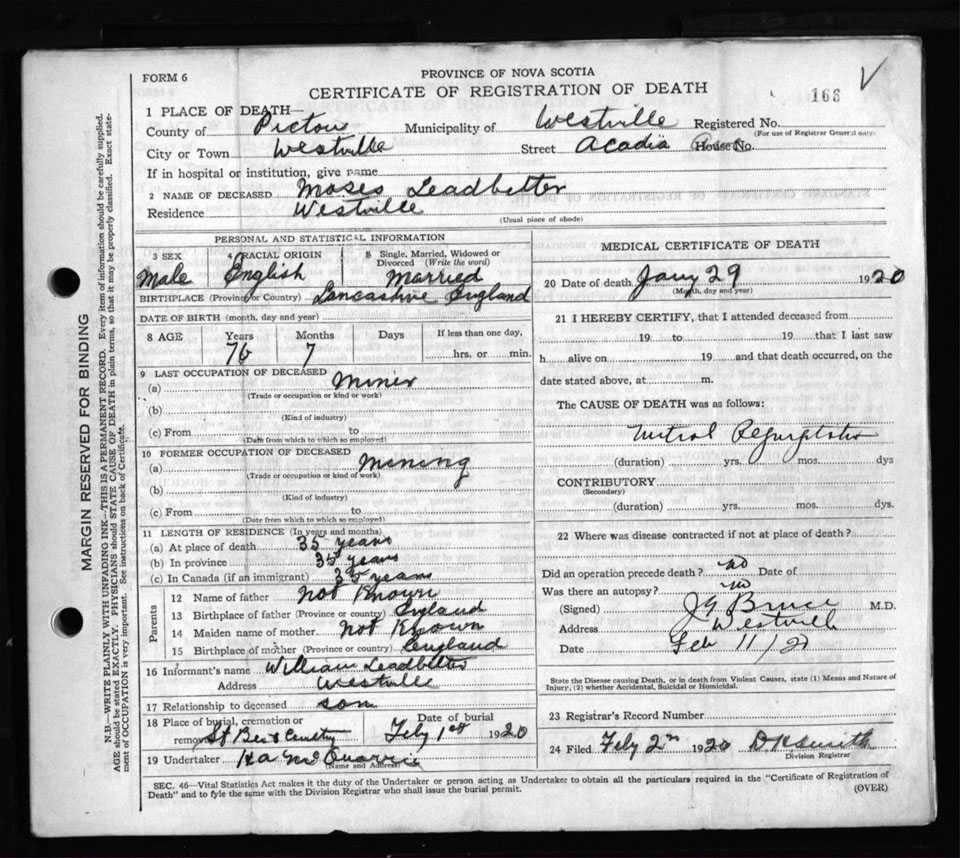 FORM 6
PROVINCE OF NOVA SCOTIA
CERTIFICATE OF REGISTRATION OF DEATH
168
1 PLACE OF DEATH—
County of Pictou Municipality of Westville Registered No.
(For use of Registrar General only)
City or Town Westville Street Acadia House No.
If in hospital or institution, give name
2 NAME OF DECEASED Moses Leadbetter
Residence Westville
(Usual place of abode)
PERSONAL AND STATISTICAL INFORMATION
3 SEX 4 RACIAL ORIGIN 5 Single, Married, Widowed or Divorced (Write the word)
Male English Married
BIRTHPLACE (Province or Country) Lancashire England
DATE OF BIRTH (month, day and year)
8 AGE Years Months Days If less than one day,
76 7 hrs. or min.
9 LAST OCCUPATION OF DECEASED
(a) Miner
(Trade or occupation or kind or work)
(b)
(Kind of industry)
(c) From to
(Date from which to which so employed)
10 FORMER OCCUPATION OF DECEASED
(a) Mining
(Trade or occupation or kind of work)
(b)
(Kind of industry)
(c) From to
(Date from which to which so employed)
11 LENGTH OF RESIDENCE (In years and months)
(a) At place of death 35 years
(b) In province 35 years
(c) In Canada (if an immigrant) 35 years
Parents
12 Name of father Not Known
13 Birthplace of father (Province or country) England
14 Maiden name of mother Not Known
15 Birthplace of mother (Province or country) England
16 Informant's name William Leadbetter
Address Westville
17 Relationship to deceased son
18 Place of burial, cremation or removal Date of burial
Cemetry Feby 1st 1920
19 Undertaker H A McQuarrie
(Name and Address)
MEDICAL CERTIFICATE OF DEATH
20 Date of death Jany 29 1920
(Month, day and year)
21 I HEREBY CERTIFY, that I attended deceased from
19 to 19 that I last saw
h alive on 19 and that death occurred, on the
date stated above, at m.
The CAUSE OF DEATH was as follows:
Mitral Regurgitation
(duration) yrs. mos. dys
CONTRIBUTORY
(Secondary)
(duration) yrs. mos. dys.
22 Where was disease contracted if not at place of death?
Did an operation precede death? no Date of
Was there an autopsy? no
(Signed) J G Bruce M.D.
Address Westville
Date Feb 11/21
State the Disease causing Death, or in death from Violent Causes, state (1) Means and Nature of
Injury, (2) whether Accidental, Suicidal or Homicidal.
23 Registrar's Record Number
24 Filed Feby 2nd 1920 D H Smith
Division Registrar
SEC. 46—Vital Statistics Act makes it the duty of the Undertaker or person acting as Undertaker to obtain all the particulars required in the "Certificate of Registration of
Death" and to fyle the same with the Division Registrar who shall issue the burial permit.
(OVER)
MARGIN RESERVED FOR BINDING
N.B.—WRITE PLAINLY WITH UNFADING INK—THIS IS A PERMANENT RECORD. Every item of information should be carefully supplied.
AGE should be stated EXACTLY. PHYSICIANS should STATE CAUSE OF DEATH in plain terms, so that it may be properly classified. Exact statement of OCCUPATION is very important. See instructions on back of Certificate.